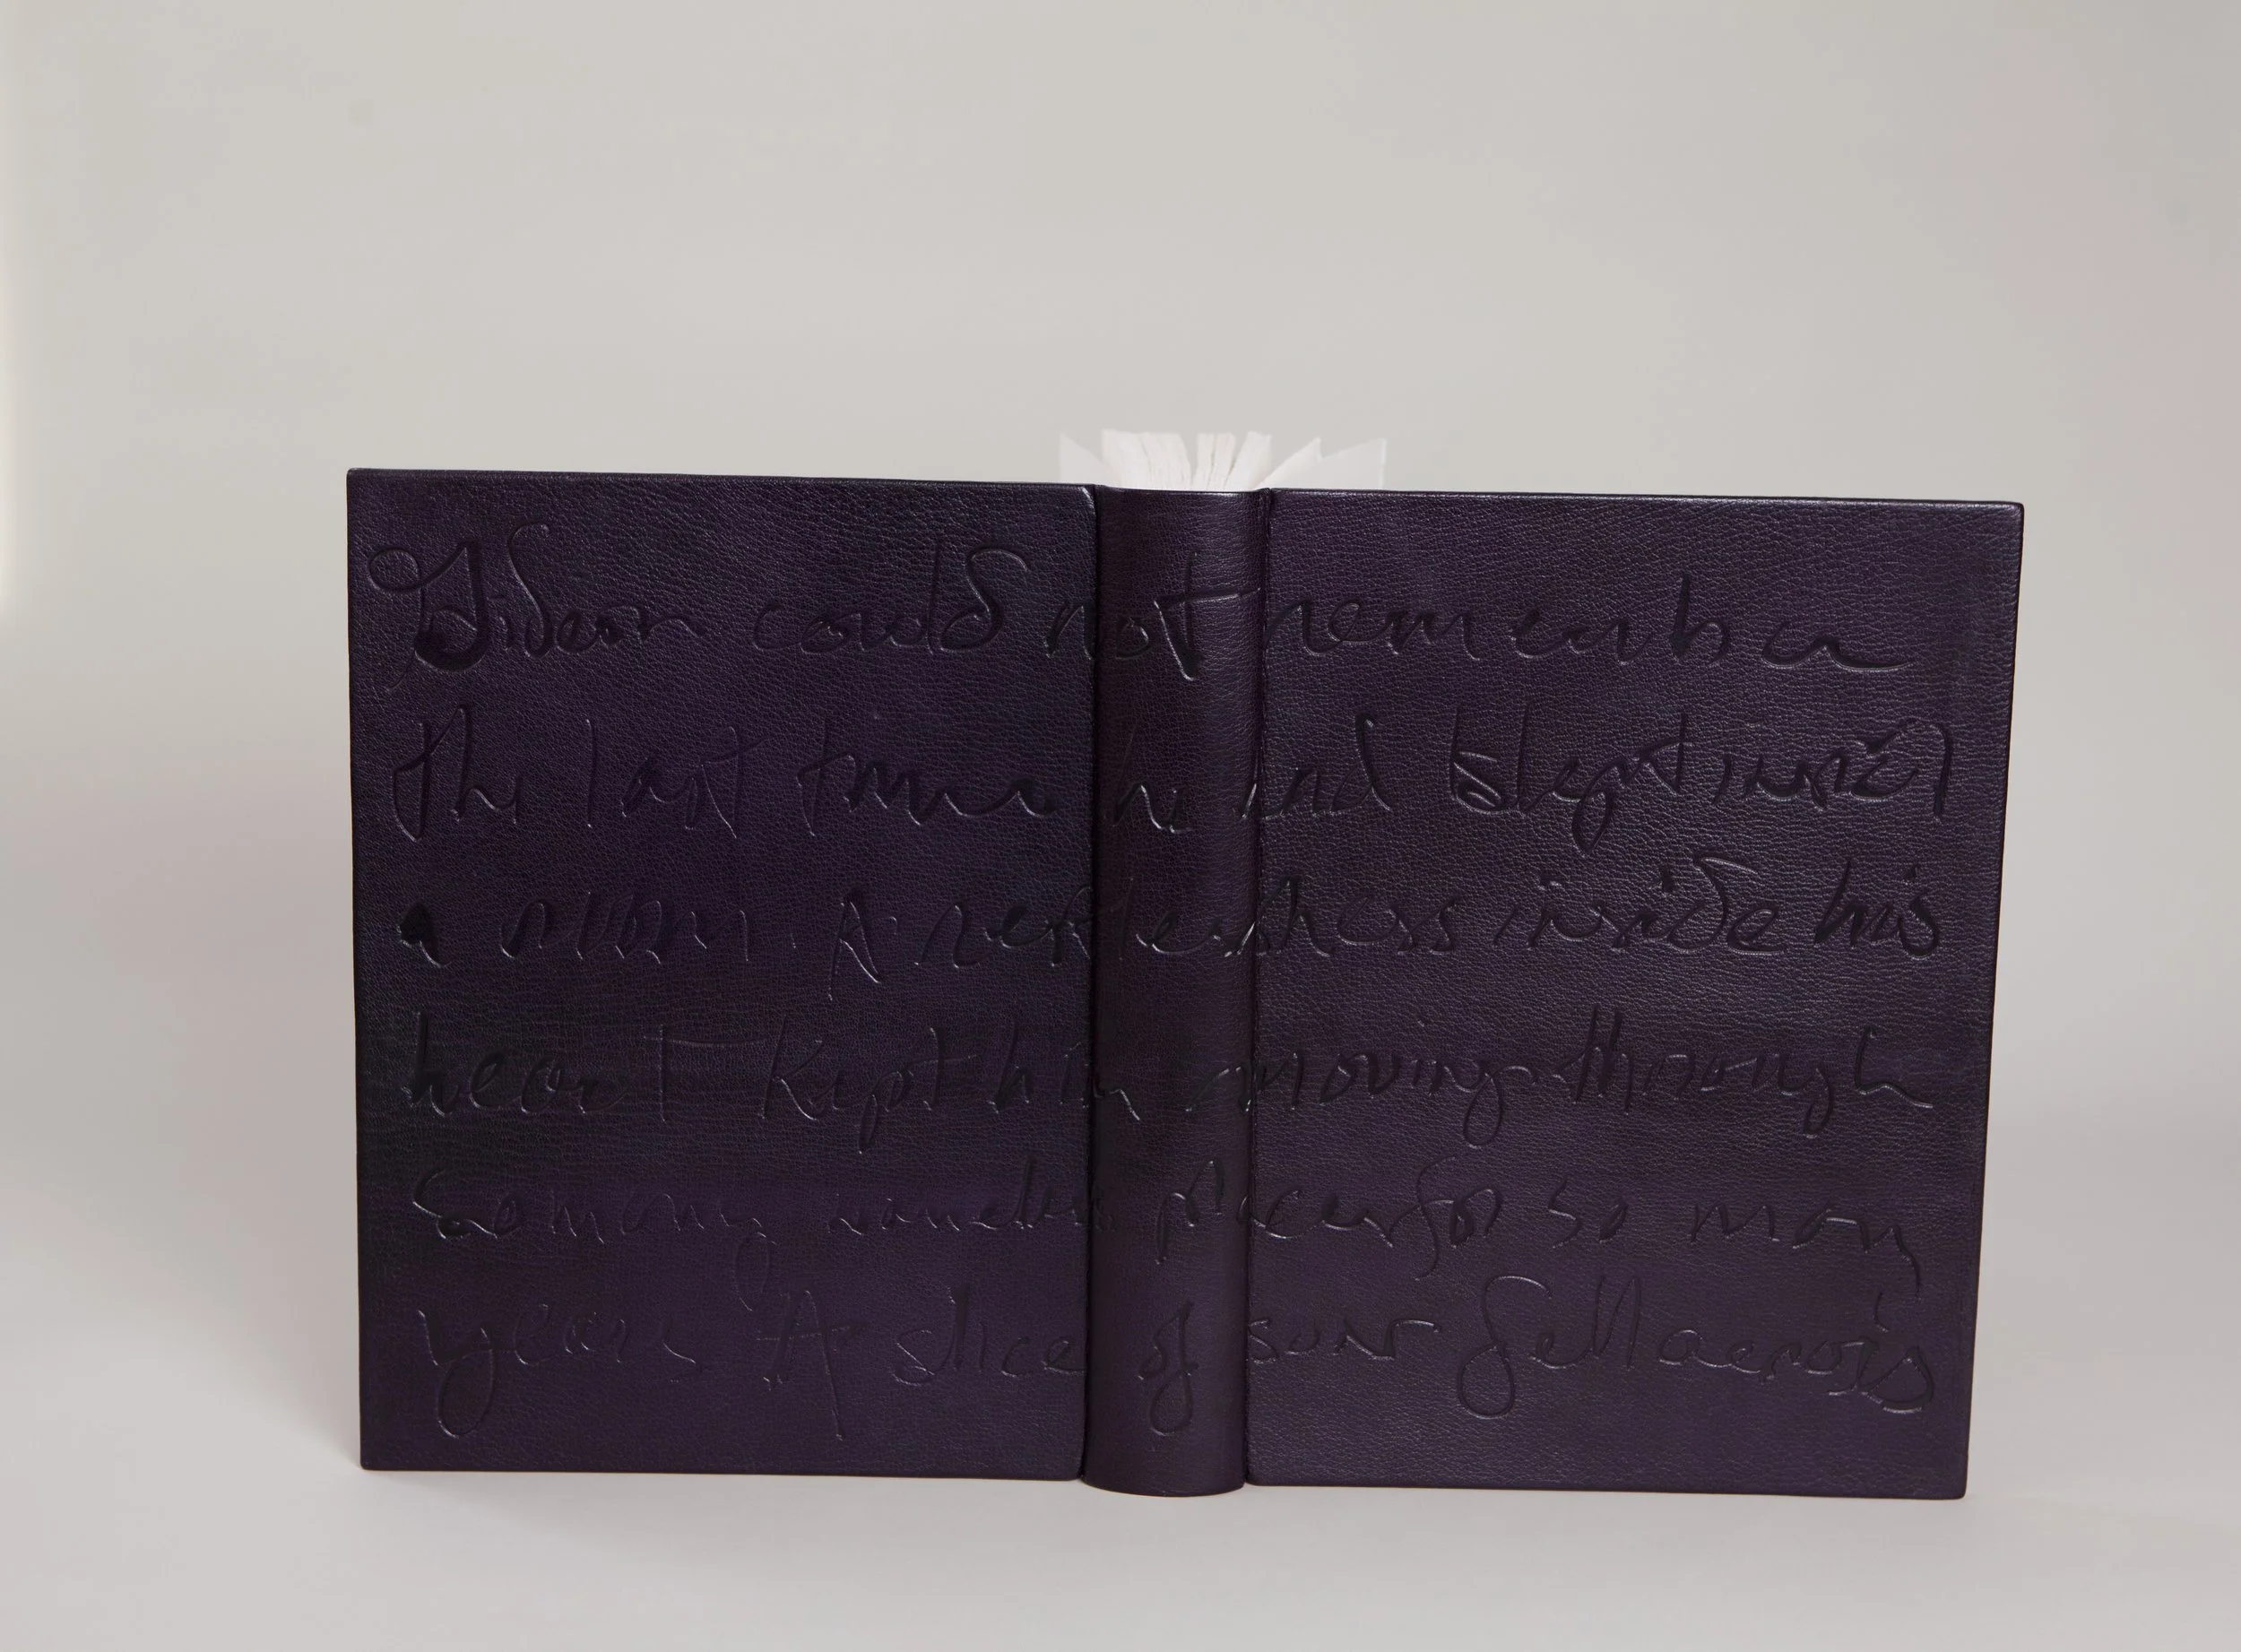 Gideon could not remember
the last time he had slept in
a room. A restlessness inside his
heart kept him moving through
so many places for so many
years A slice of sun fell across